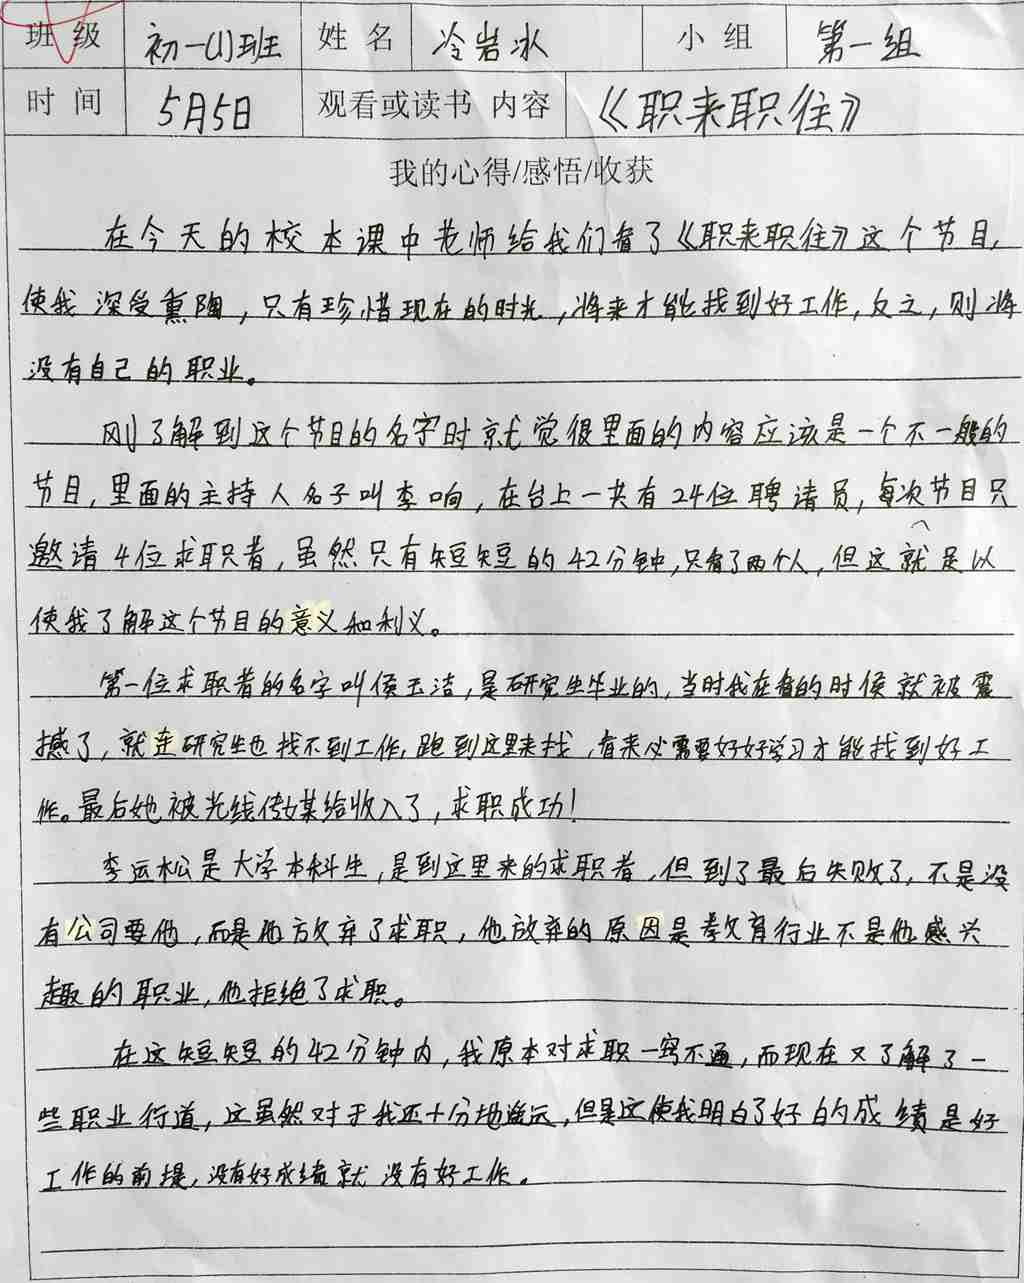 班级 初一(1)班 姓名 冷岩冰 小组 第一组
时间 5月5日 观看或读书 内容 《职来职往》
我的心得/感悟/收获
在今天的校本课中老师给我们看了《职来职往》这个节目,
使我深受熏陶,只有珍惜现在的时光,将来才能找到好工作,反之,则将
没有自己的职业。
刚了解到这个节目的名字时就觉很里面的内容应该是一个不一般的
节目,里面的主持人名子叫李响,在台上一共有24位聘请员,每次节目只
邀请4位求职者,虽然只有短短的42分钟,只看了两个人,但这就是以
使我了解这个节目的意义和利义。
第一位求职者的名字叫侯玉洁,是研究生毕业的,当时我在看的时侯就被震
撼了,就连研究生也找不到工作,跑到这里来找,看来必需要好好学习才能找到好工
作。最后她被光线传媒给收入了,求职成功!
李运松是大学本科生,是到这里来的求职者,但到了最后失败了,不是没
有公司要他,而是他放弃了求职,他放弃的原因是教育行业不是他感兴
趣的职业,他拒绝了求职。
在这短短的42分钟内,我原本对求职一窍不通,而现在又了解了一
些职业行道,这虽然对于我还十分地遥远,但是这使我明白了好的成绩是好
工作的前提,没有好成绩就没有好工作。